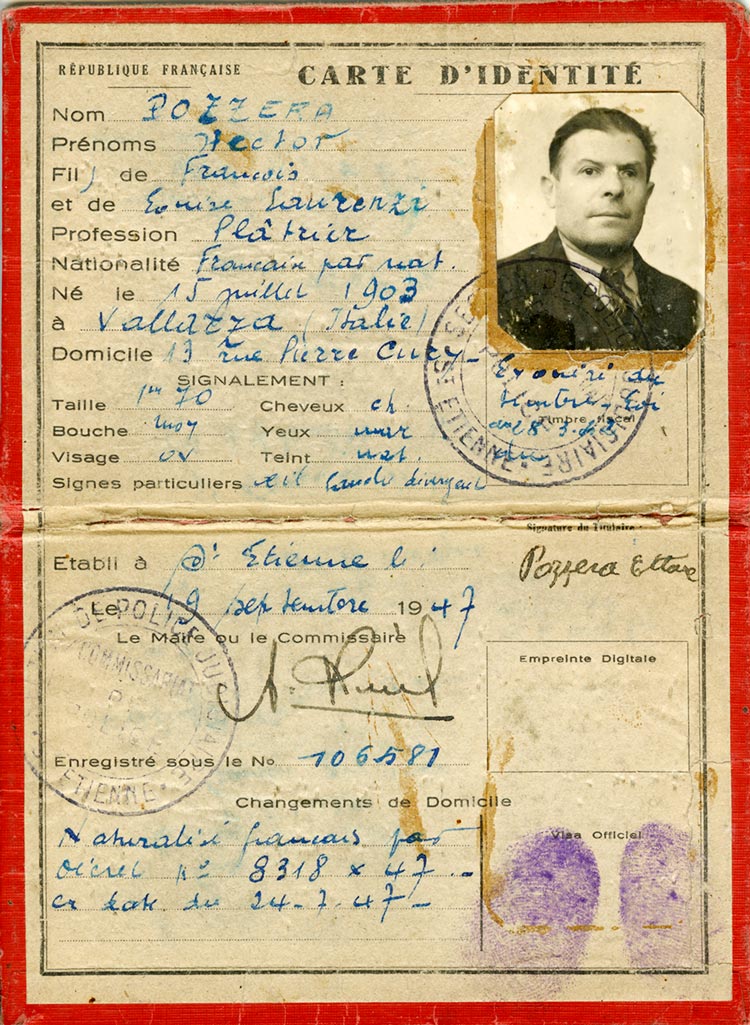 RÉPUBLIQUE FRANÇAISE
CARTE D'IDENTITÉ
Nom POZZERA
Prénoms Hector
Fils de François
et de Louise Laurenzi
Profession Plâtrier
Nationalité Français par nat.
Né le 15 juillet 1903
à Vallazza (Italie)
Domicile 13 rue Pierre Cury
SIGNALEMENT :
Taille 1m 70 Cheveux ch.
Bouche moy Yeux mar
Visage ov Teint nat.
Signes particuliers œil gauche divergent
Exonéré du
timbre Loi
Timbre fiscal
Signature du Titulaire :
Pozzera Ettore
Etabli à St Etienne
Le 19 septembre 1947
Le Maire ou le Commissaire
Empreinte Digitale
COMMISSARIAT
DE
POLICE
ETIENNE
Enregistré sous le No 106581
Changements de Domicile
Naturalisé français par
Décret No 8318 x 47
en date du 24-7-47
Visa Officiel